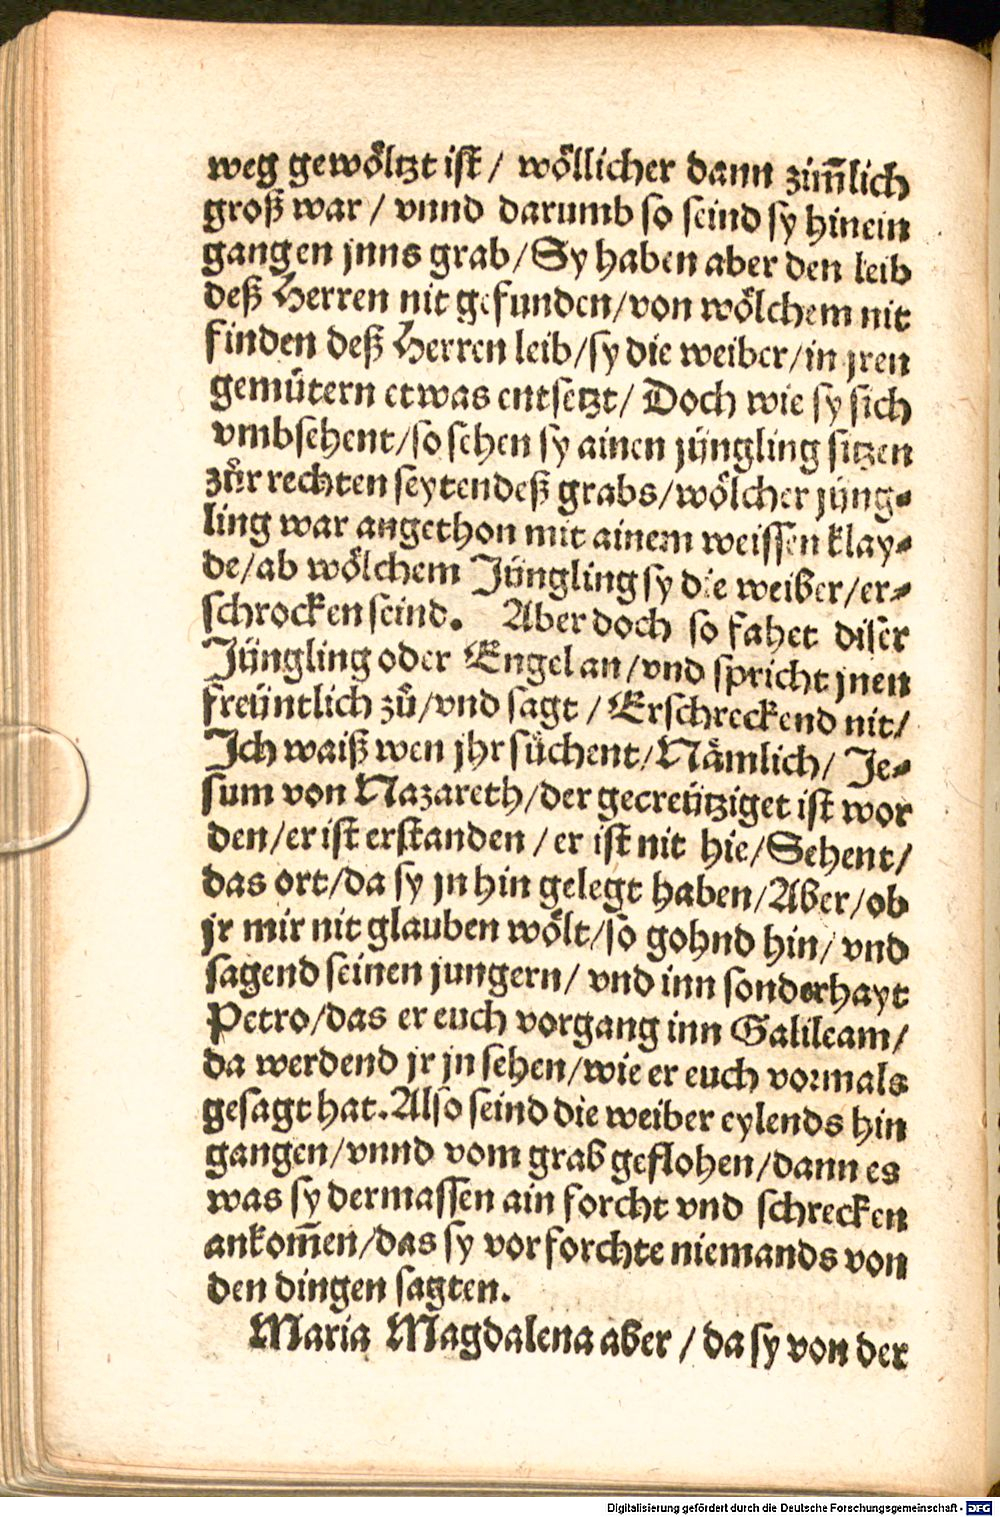 weg gewöltzt ist / wöllicher dann zim̃lich
groß war / vnnd darumb so seind sy hinein
gangen jnns grab / Sy haben aber den leib
deß Herren nit gefunden / von wölchem nit
finden deß Herren leib / sy die weiber / in jren
gemütern etwas entsetzt / Doch wie sy sich
vmbsehent / so sehen sy ainen jüngling sitzen
zůr rechten seytendeß grabs / wölcher jüng⸗
ling war angethon mit ainem weissen klay⸗
de / ab wölchem Jüngling sy die weiber / er⸗
schrocken seind. Aber doch so fahet diser
Jüngling oder Engel an / vnd spricht jnen
freüntlich zů / vnd sagt / Erschreckend nit /
Jch waiß wen jhr sůchent / Nämlich / Je⸗
sum von Nazareth / der gecreütziget ist wor
den / er ist erstanden / er ist nit hie / Sehent /
das ort / da sy jn hin gelegt haben / Aber / ob
jr mir nit glauben wölt / so gohnd hin / vnd
sagend seinen jungern / vnd inn sonderhayt
Petro / das er euch vorgang inn Galileam /
da werdend jr jn sehen / wie er euch vormals
gesagt hat. Also seind die weiber eylends hin
gangen / vnnd vom grab geflohen / dann es
was sy dermassen ain forcht vnd schrecken
ankom̃en / das sy vor forchte niemands von
den dingen sagten.
Maria Magdalena aber / da sy von der
Digitalisierung gefördert durch die Deutsche Forschungsgemeinschaft - DFG